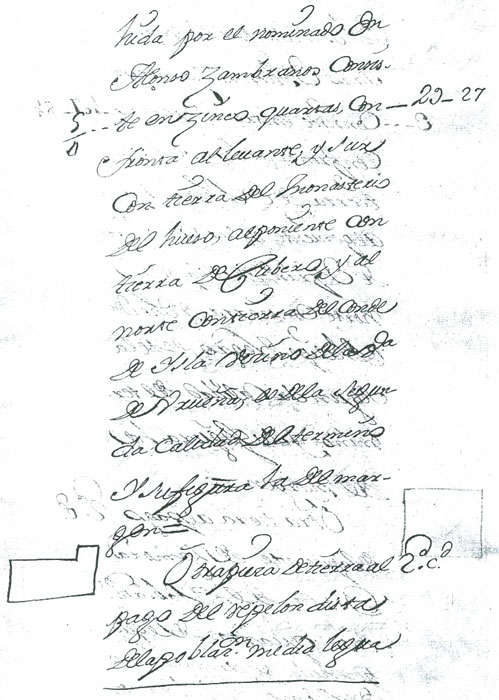 hida por el nominado Dn
Alonso Zambrano: Consis-
5/4 te en zinco quartas, Con - 23 - 27
fronta al levante, y sur
Con tierra del Monasterio
del hueso, al poniente con
tierra de Cubero, y al
norte con tierra del Conde
de Isla
de es de la segun-
da Calidad del termino
Y su figura la del mar-
gen =
Otra pieza de tierra al 2ª. c.d
pago del repelon dista
de la poblazn. media legua